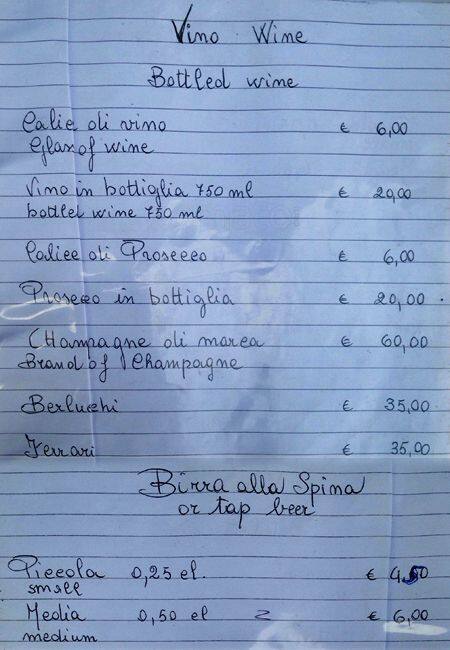 Vino Wine
Bottled wine
Calie di vino € 6,00
Glas of wine
Vino in bottiglia 750 ml € 20,00
bottlet wine 750 ml
Calice di Prosecco € 6,00
Prosecco in bottiglia € 20,00
CHampagne di marca € 60,00
Brand of Champagne
Berlucchi € 35,00
Ferrari € 35,00
Birra alla Spina
or tap beer
Piccola 0,25 cl. € 4,50
small
Media 0,50 cl € 6,00
medium